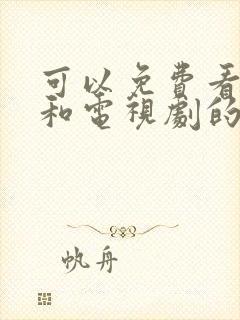 可以免費看
和電視劇的
帆舟